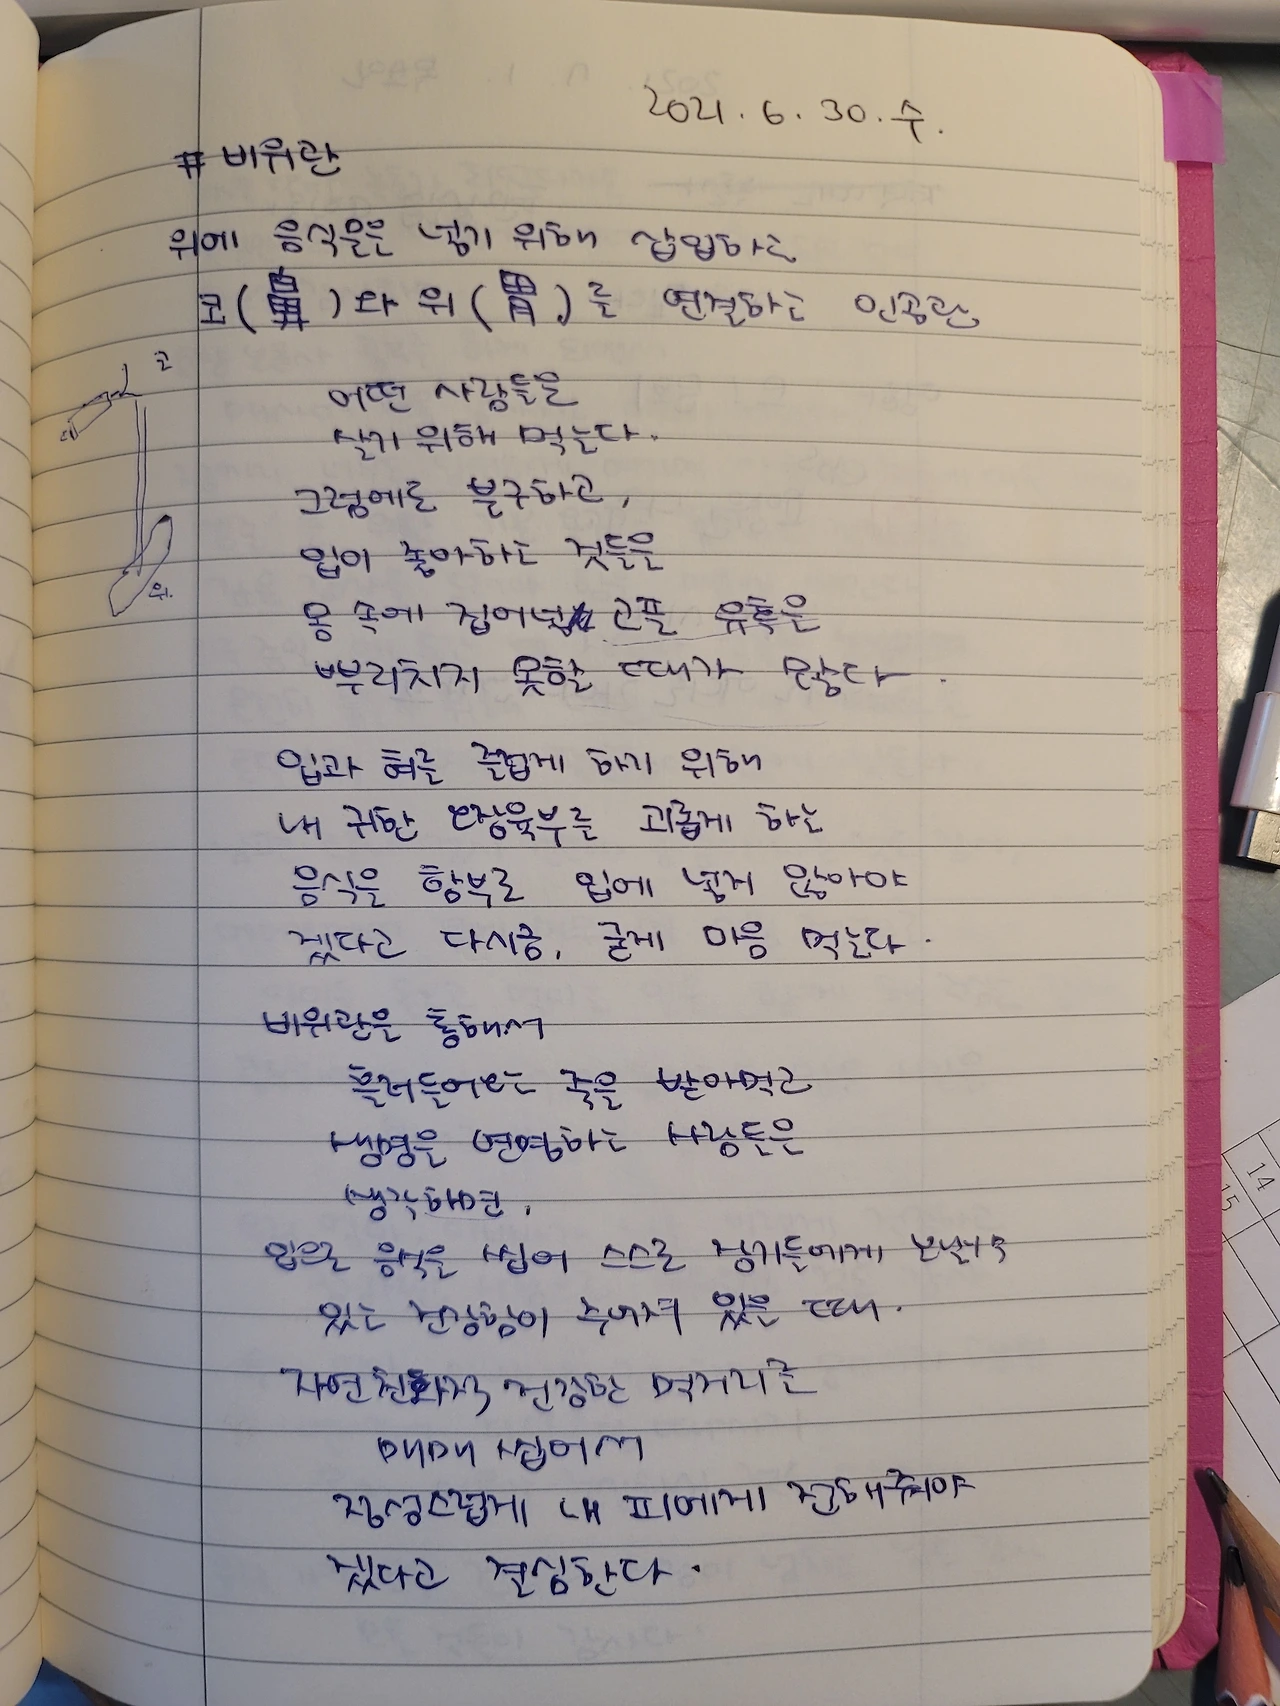 2021. 6. 30. 수.
# 비위관
위에 음식물을 넣기 위해 삽입하는
코(鼻)와 위(胃)를 연결하는 인공관
코
입
위.
어떤 사람들은
살기 위해 먹는다.
그럼에도 불구하고,
입이 좋아하는 것들을
몸 속에 집어넣고플 유혹을
뿌리치지 못할 때가 많다.
입과 혀를 즐겁게 하기 위해
내 귀한 오장육부를 괴롭게 하는
음식을 함부로 입에 넣지 않아야
겠다고 다시금, 굳게 마음 먹는다.
비위관을 통해서
흘러들어오는 죽을 받아먹고
생명을 연명하는 사람들을
생각하면,
입으로 음식을 씹어 스스로 장기들에게 보낼 수
있는 건강함이 주어져 있을 때.
자연친화적 건강한 먹거리를
매매 씹어서
정성스럽게 내 피에게 전해줘야
겠다고 결심한다.
14
15